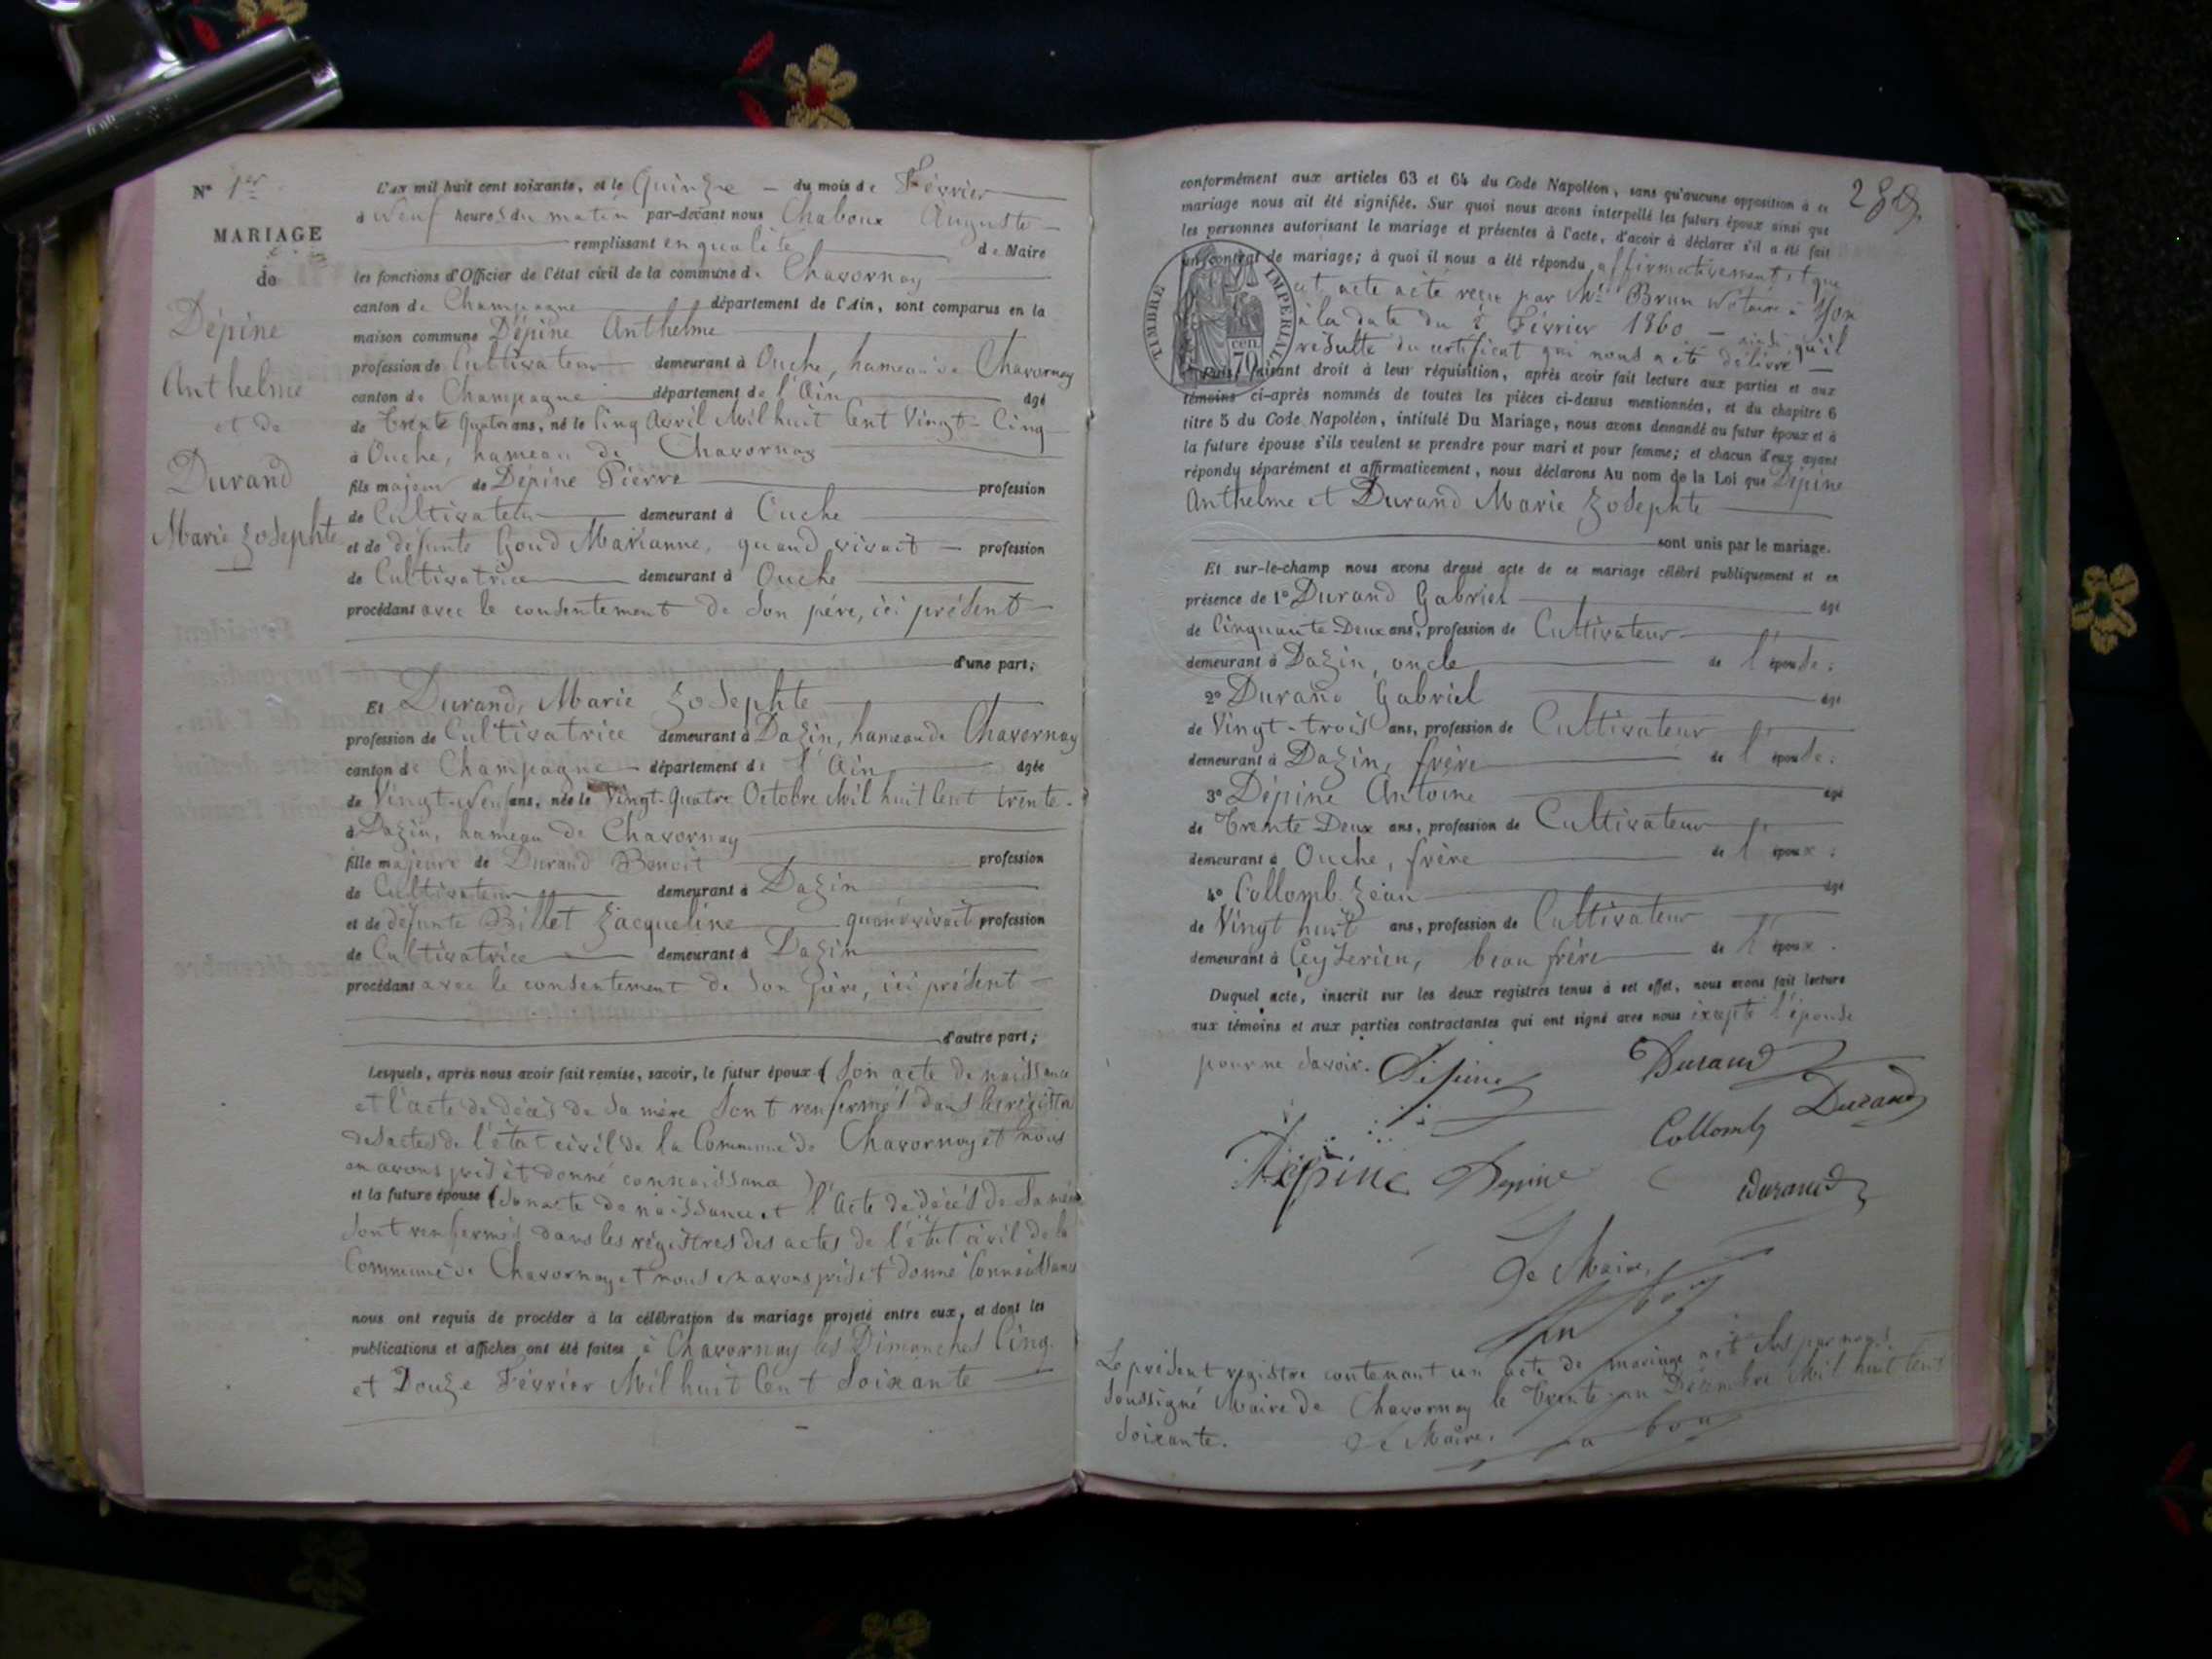 N° 1er
MARIAGE
de
Dépine
Anthelme
et de
Durand
Marie Josephte
L'an mil huit cent soixante, et le Quinze du mois de Février
à Neuf heures du matin par-devant nous Chaboux Auguste
remplissant en qualité de Maire
les fonctions d'Officier de l'état civil de la commune de Chavornay
canton de Champagne département de l'Ain, sont comparus en la
maison commune Dépine Anthelme
profession de Cultivateur demeurant à Ouche, hameau de Chavornay
canton de Champagne département de l'Ain âgé
de trente Quatre ans, né le Cinq Avril Mil huit Cent Vingt-Cinq
à Ouche, hameau de Chavornay
fils majeur de Dépine Pierre profession
de Cultivateur demeurant à Ouche
et de défunte Goud Marianne, quand vivait profession
de Cultivatrice demeurant à Ouche
procédant avec le consentement de son père, ici présent
d'une part;
Et Durand, Marie Josephte
profession de Cultivatrice demeurant à Dazin, hameau de Chavornay
canton de Champagne département de l'Ain âgée
de Vingt-Neuf ans, née le Vingt-Quatre Octobre Mil huit Cent trente
à Dazin, hameau de Chavornay
fille majeure de Durand Benoit profession
de Cultivateur demeurant à Dazin
et de défunte Billet Jacqueline quand vivait profession
de Cultivatrice demeurant à Dazin
procédant avec le consentement de son père, ici présent
d'autre part;
Lesquels, après nous avoir fait remise, savoir, le futur époux (Son acte de naissance
et l'acte de décès de sa mère sont renfermés dans les registres
des actes de l'état civil de la Commune de Chavornay et nous
en avons pris et donné connaissance)
et la future épouse (son acte de naissance et l'acte de décès de sa mère
sont renfermés dans les régistres des actes de l'état civil de la
Commune de Chavornay et nous en avons pris et donné Connaissance
nous ont requis de procéder à la célébration du mariage projeté entre eux, et dont les
publications et affiches ont été faites à Chavornay les Dimanches Cinq
et Douze Février Mil huit Cent soixante
conformément aux articles 63 et 64 du Code Napoléon, sans qu'aucune opposition à ce
mariage nous ait été signifiée. Sur quoi nous avons interpellé les futurs époux ainsi que
les personnes autorisant le mariage et présentes à l'acte, d'avoir à déclarer s'il a été fait
un contrat de mariage; à quoi il nous a été répondu affirmativement et que
cet acte a été reçu par Me Brun Notaire à Yon
à la date du 2 Février 1860 ainsi qu'il
résulte du certificat qui nous a été délivré
TIMBRE IMPERIAL
70 cen.
Puis, faisant droit à leur réquisition, après avoir fait lecture aux parties et aux
témoins ci-après nommés de toutes les pièces ci-dessus mentionnées, et du chapitre 6
titre 5 du Code Napoléon, intitulé Du Mariage, nous avons demandé au futur époux et à
la future épouse s'ils veulent se prendre pour mari et pour femme; et chacun d'eux ayant
répondu séparément et affirmativement, nous déclarons Au nom de la Loi que Dépine
Anthelme et Durand Marie Josephte
sont unis par le mariage.
Et sur-le-champ nous avons dressé acte de ce mariage célébré publiquement et en
présence de 1° Durand Gabriel âgé
de Cinquante-Deux ans, profession de Cultivateur
demeurant à Dazin, oncle de l'épouse;
2° Durand Gabriel âgé
de Vingt-trois ans, profession de Cultivateur
demeurant à Dazin, frère de l'épouse;
3° Dépine Antoine âgé
de Trente Deux ans, profession de Cultivateur
demeurant à Ouche, frère de l'époux;
4° Collomb Jean âgé
de Vingt huit ans, profession de Cultivateur
demeurant à Ceyzerieu, beau frère de l'époux.
Duquel acte, inscrit sur les deux registres tenus à cet effet, nous avons fait lecture
aux témoins et aux parties contractantes qui ont signé avec nous excepté l'épouse
pour ne savoir. Dépine Durand
Collomb Durand
Dépine Depine Durand
Le Maire,
Le présent registre contenant un acte de mariage a été clos par nous
soussigné Maire de Chavornay le Trente-un Décembre Mil huit Cent
soixante. Le Maire,